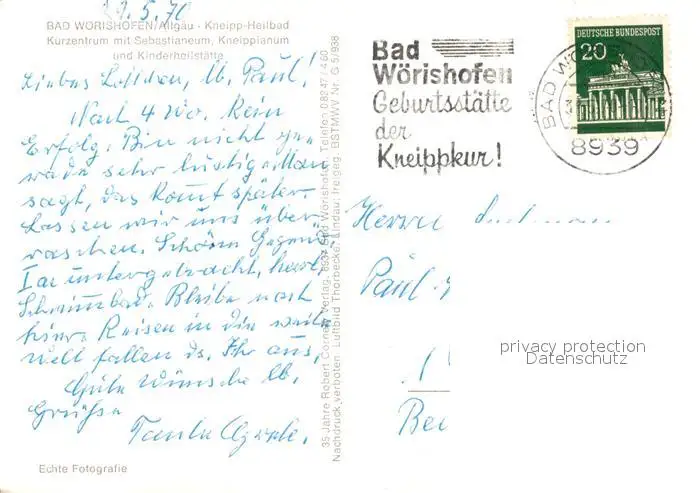 29.5.70
BAD WÖRISHOFEN/Allgäu - Kneipp-Heilbad
Kurzentrum mit Sebastianeum, Kneippianum
und Kinderheilstätte
Liebes Lottchen, lb. Paul!
Nach 4 Wo. kein
Erfolg. Bin nicht ge-
rade sehr lustig. Man
sagt, das komt später.
Lassen wir uns über-
raschen. Schöne Gegend,
Ia untergebracht, herrl.
Schwimmbad. Bleibe noch
hier. Reisen in die weite
Welt fallen ds. Jhr aus,
Gute Wünsche lb.
Grüße
Tante
Echte Fotografie
35 Jahre Robert Cornely Verlag, 8939 Bad Wörishofen, Telefon 08247/460
Nachdruck verboten Luftbild Thorbecke Lindau, freigeg. BSTMWV Nr. G 5/938
Bad
Wörishofen
Geburtsstätte
der
Kneippkur!
DEUTSCHE BUNDESPOST
20
BAD
8939
Herrn
Paul
privacy protection
Datenschutz